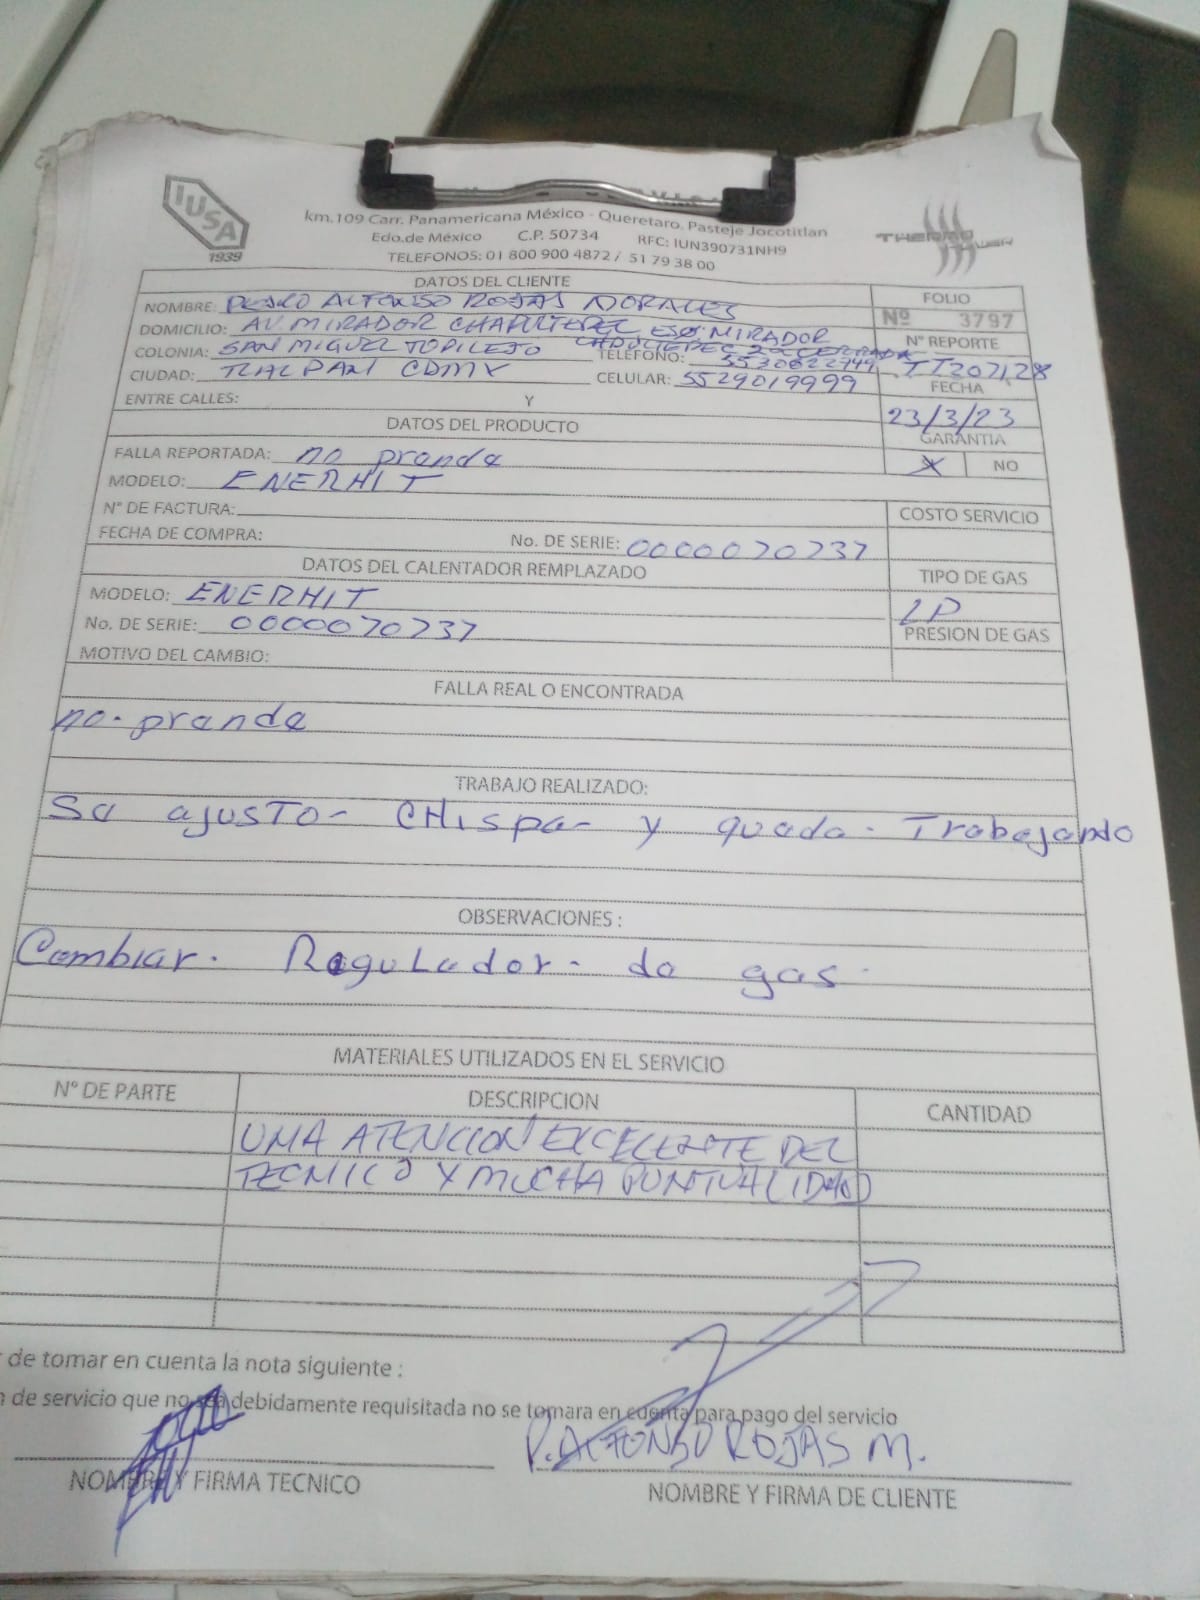 IUSA
1939
km.109 Carr. Panamericana México - Queretaro. Pasteje Jocotitlan
Edo.de México C.P. 50734 RFC: IUN390731NH9
TELEFONOS: 01 800 900 4872 / 51 79 38 00
THERMO
DATOS DEL CLIENTE
FOLIO
NOMBRE: PEDRO ALFONSO ROJAS MORALES
Nº 3797
DOMICILIO: AV MIRADOR CHAPULTEPEC ESQ. MIRADOR
CHAPULTEPEC 2a CERRADA
Nº REPORTE
COLONIA: SAN MIGUEL TOPILEJO TELEFONO: 5530622949 TT207128
CIUDAD: TLALPAN CDMX CELULAR: 5529019999
FECHA
ENTRE CALLES: Y
23/3/23
DATOS DEL PRODUCTO
GARANTIA
FALLA REPORTADA: no prende
X NO
MODELO: ENERHIT
Nº DE FACTURA:
COSTO SERVICIO
FECHA DE COMPRA: No. DE SERIE: 0000070737
DATOS DEL CALENTADOR REMPLAZADO
TIPO DE GAS
MODELO: ENERHIT
LP
No. DE SERIE: 0000070737
PRESION DE GAS
MOTIVO DEL CAMBIO:
FALLA REAL O ENCONTRADA
no. prende
TRABAJO REALIZADO:
Se ajusto- CHispa- y queda. Trabajando
OBSERVACIONES :
Cambiar. Regulador- de gas.
MATERIALES UTILIZADOS EN EL SERVICIO
Nº DE PARTE DESCRIPCION CANTIDAD
UNA ATENCION EXCELENTE DEL
TECNICO Y MUCHA PUNTUALIDAD
de tomar en cuenta la nota siguiente :
de servicio que no sea debidamente requisitada no se tomara en cuenta para pago del servicio
P. ALFONSO ROJAS M.
NOMBRE Y FIRMA TECNICO
NOMBRE Y FIRMA DE CLIENTE